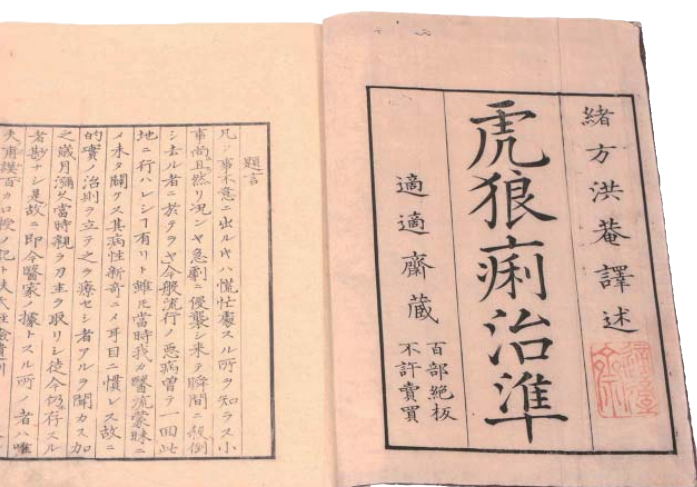 緒方洪菴譯述
虎狼痢治準
適適齋蔵
百部絶板
不許賣買
題言
凡ソ事不意ニ出ルキハ慌忙處スル所ヲ知ラス小
事尚且然リ況ンヤ急劇ニ侵襲シ来テ瞬間ニ殺倒
シ去ル者ニ於テヲヤ今般流行ノ悪病曽テ一回此
地ニ行ハレシ 有リト雖 當時我カ醫流蒙昧ニ
メ未タ闢クス其病性新奇ニメ耳目ニ慣レス故ニ
的實ノ治則ヲ立テ之ヲ療セシ者アルヲ聞カス加
之歳月瀰久當時親ラ刀圭ヲ取リシ徒今仍存スル
者尠ナシ是故ニ即今醫家ノ據トスル所ノ者ハ唯